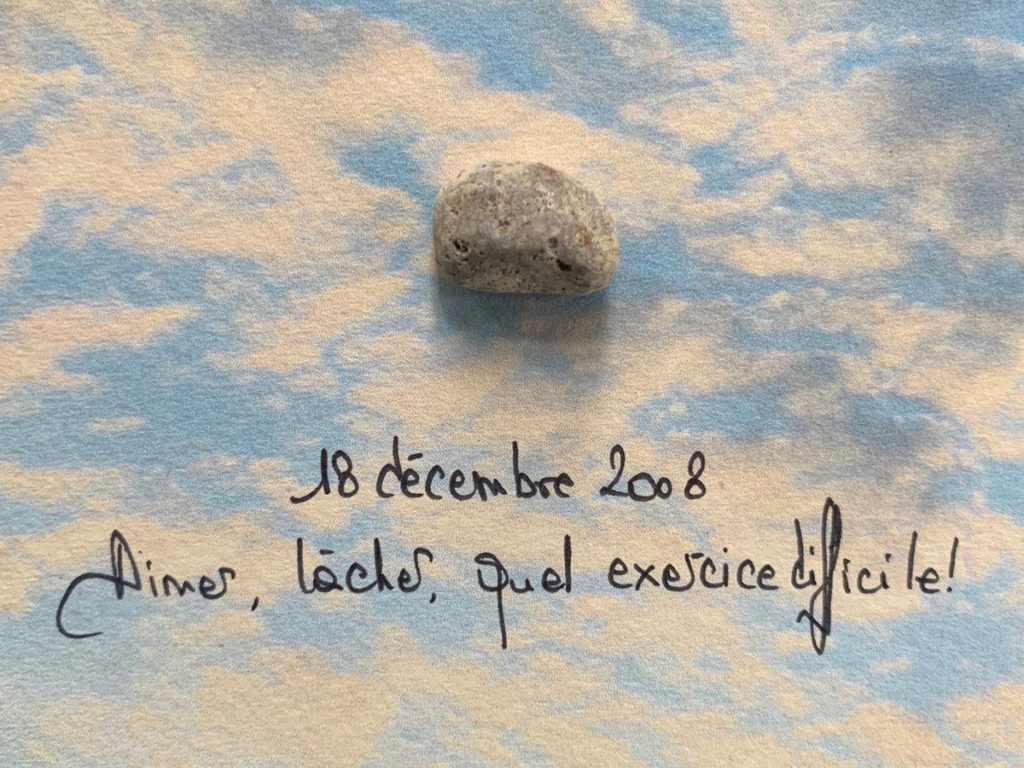 18 décembre 2008
Aimer, lâcher, quel exercice difficile!